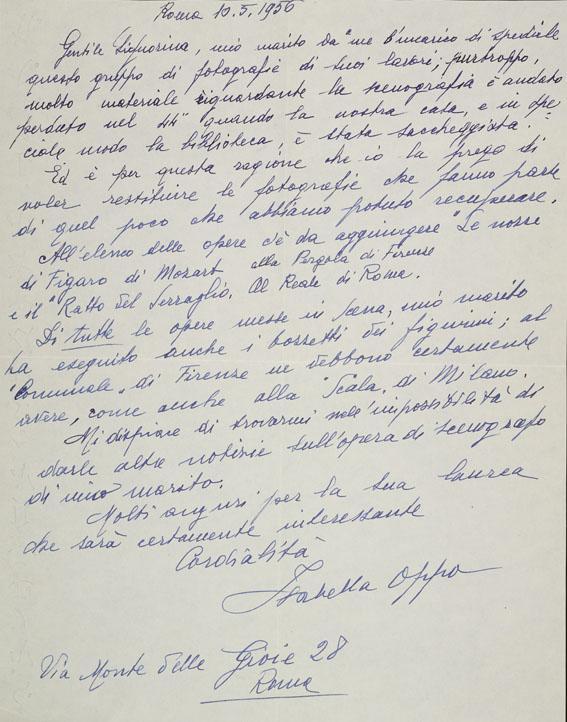 Roma 10.5.1956
Gentile Signorina, mio marito da "me l'incarico di spedirle
questo gruppo di fotografie di suoi lavori; purtroppo,
molto materiale riguardante la scenografia è andato
perduto nel 44" quando la nostra casa, e in spe=
ciale modo la biblioteca, è stata saccheggiata.
Ed è per questa ragione che io la prego di
voler restituire le fotografie che fanno parte
di quel poco che abbiamo potuto recuperare.
All'elenco delle opere c'è da aggiungere "Le nozze
di Figaro di Mozart alla Pergola di Firenze
e il "Ratto del Serraglio, Al Reale di Roma.
Di tutte le opere messe in scena, mio marito
ha eseguito anche i bozzetti dei figurini; al
"Comunale" di Firenze ne debbono certamente
avere, come anche alla "Scala" di Milano.
Mi dispiace di trovarmi nell'impossibilità di
darle altre notizie sull'opera di scenografo
di mio marito.
Molti auguri per la sua laurea
che sarà certamente interessante
Cordialità
Isabella Oppo
Via Monte delle Gioie 28
Roma